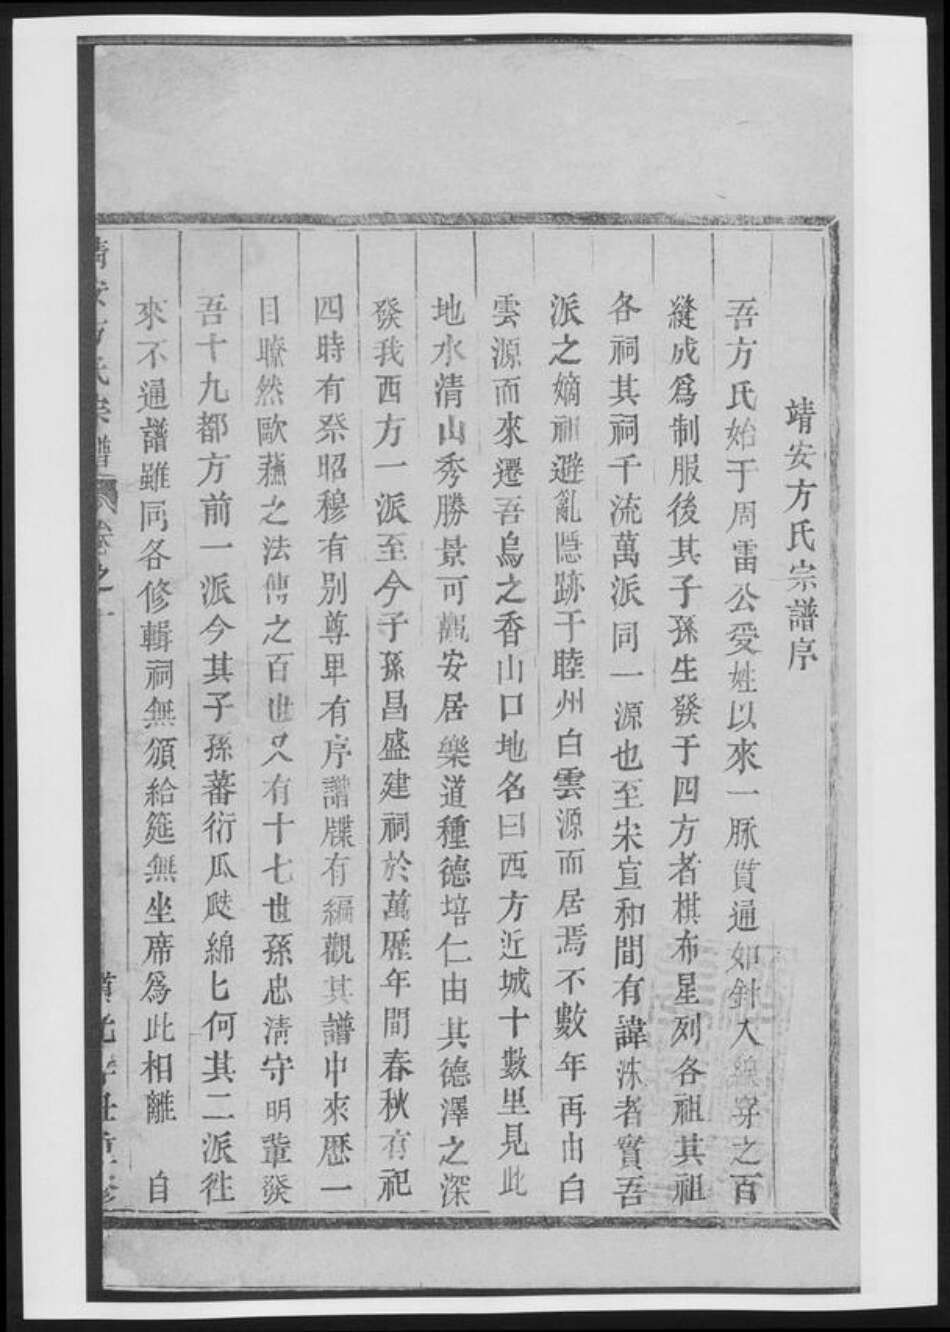 靖安方氏宗譜序
吾方氏始于周雷公受姓以來一脉貫通如針入線穿之百
縫成爲制服後其子孫生發于四方者棋布星列各祖其祖
各祠其祠千流萬派同一源也至宋宣和間有諱洙者實吾
派之嫡祖避亂隱跡于睦州白雲源而居焉不數年再由白
雲源而來遷吾烏之香山口地名曰西方近城十數里見此
地水清山秀勝景可觀安居樂道種德培仁由其德澤之深
發我西方一派至今子孫昌盛建祠於萬歷年間春秋有祀
四時有祭昭穆有别尊卑有序譜牒有編觀其譜中來歷一
目瞭然歐蘇之法傳之百世又有十七世孫忠清守明輩發
吾十九都方前一派今其子孫蕃衍瓜瓞綿匕何其二派徃
來不通譜雖同各修輯祠無頒給筵無坐席爲此相離 自
靖安方氏宗譜 卷之一